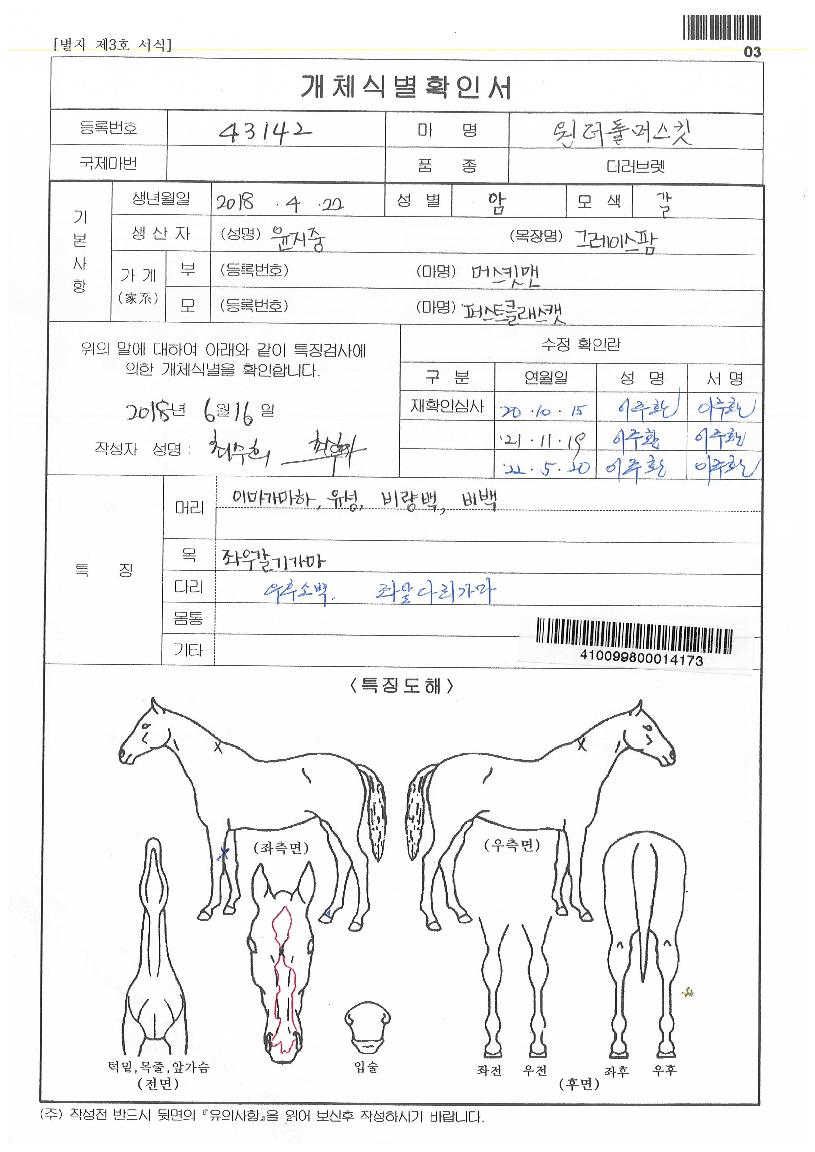 [별지 제3호 서식]
03
개체식별확인서
등록번호 43142 마 명 원더풀머스킷
국제마번 품 종 더러브렛
기본사항
생년월일 2018 . 4 . 22 성 별 암 모 색 갈
생 산 자 (성명) 윤지중 (목장명) 그레이스팜
가 계 (家系) 부 (등록번호) (마명) 머스킷맨
모 (등록번호) (마명) 퍼스트클래스캣
위의 말에 대하여 아래와 같이 특징검사에
의한 개체식별을 확인합니다.
2018년 6월 16 일
작성자 성명 : 최수현
수정 확인란
구 분 연월일 성 명 서 명
재확인심사 '20 . 10 . 15 이주환 이주환
'21 . 11 . 19 이주환 이주환
'22 . 5 . 20 이주환 이주환
특 징
머리 이마가마하, 유성, 비량백, 비백
목 좌우갈기가마
다리 우후소백. 좌앞다리가마
몸통
기타
410099800014173
<특징도해>
(좌측면) (우측면)
턱밑,목줄,앞가슴 입술 좌전 우전 좌후 우후
(전면) (후면)
(주) 작성전 반드시 뒷면의 『유의사항』을 읽어 보신후 작성하시기 바랍니다.